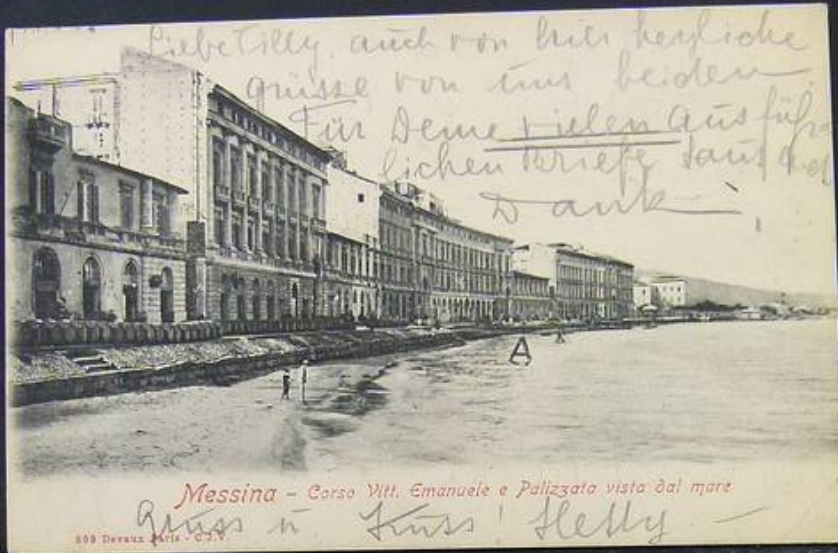 Liebe Tilly, auch von hier herzliche
grüsse von uns beiden
Für Deine vielen Ausführ=
lichen Briefe tausend
Dank
A
Messina - Corso Vitt. Emanuele e Palizzata vista dal mare
Gruss u. Kuss! Helly
Devaux Paris - C.J.V.